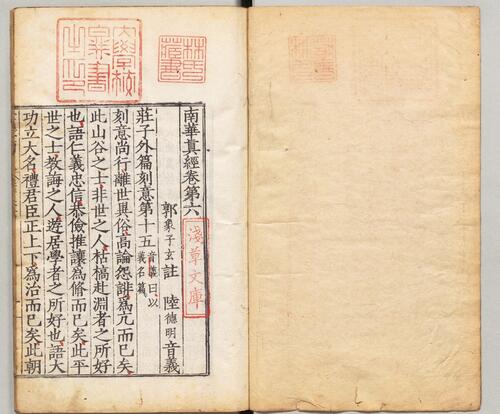 大學校
圖書
之印
林氏
藏書
淺草文庫
南華真經卷第六
郭象子玄註 陸德明音義
莊子外篇刻意第十五 音義曰以
義名篇
刻意尚行離世異俗高論怨誹爲亢而已矣
此山谷之士非世之人枯槁赴淵者之所好
也語仁義忠信恭儉推讓爲脩而已矣此平
世之士教誨之人遊居學者之所好也語大
功立大名禮君臣正上下爲治而已矣此朝